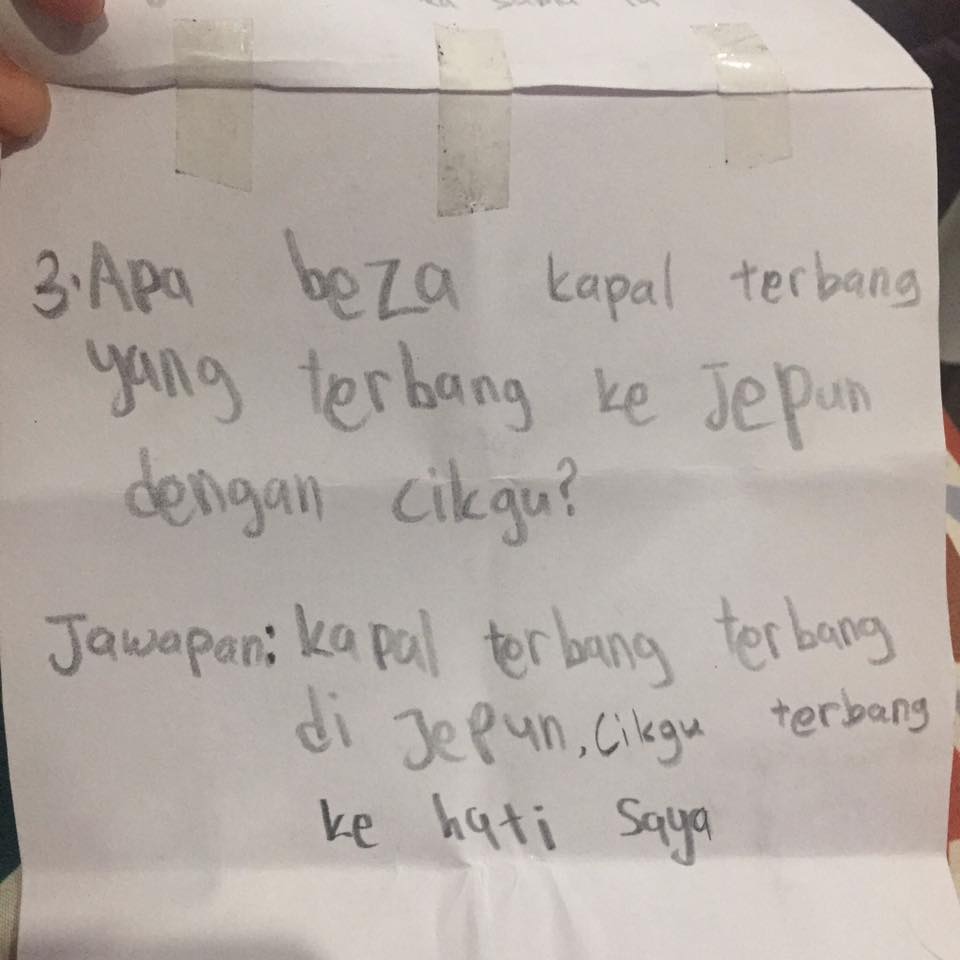 3. Apa beza kapal terbang
yang terbang ke Jepun
dengan cikgu?
Jawapan: kapal terbang terbang
di Jepun, Cikgu terbang
ke hati saya